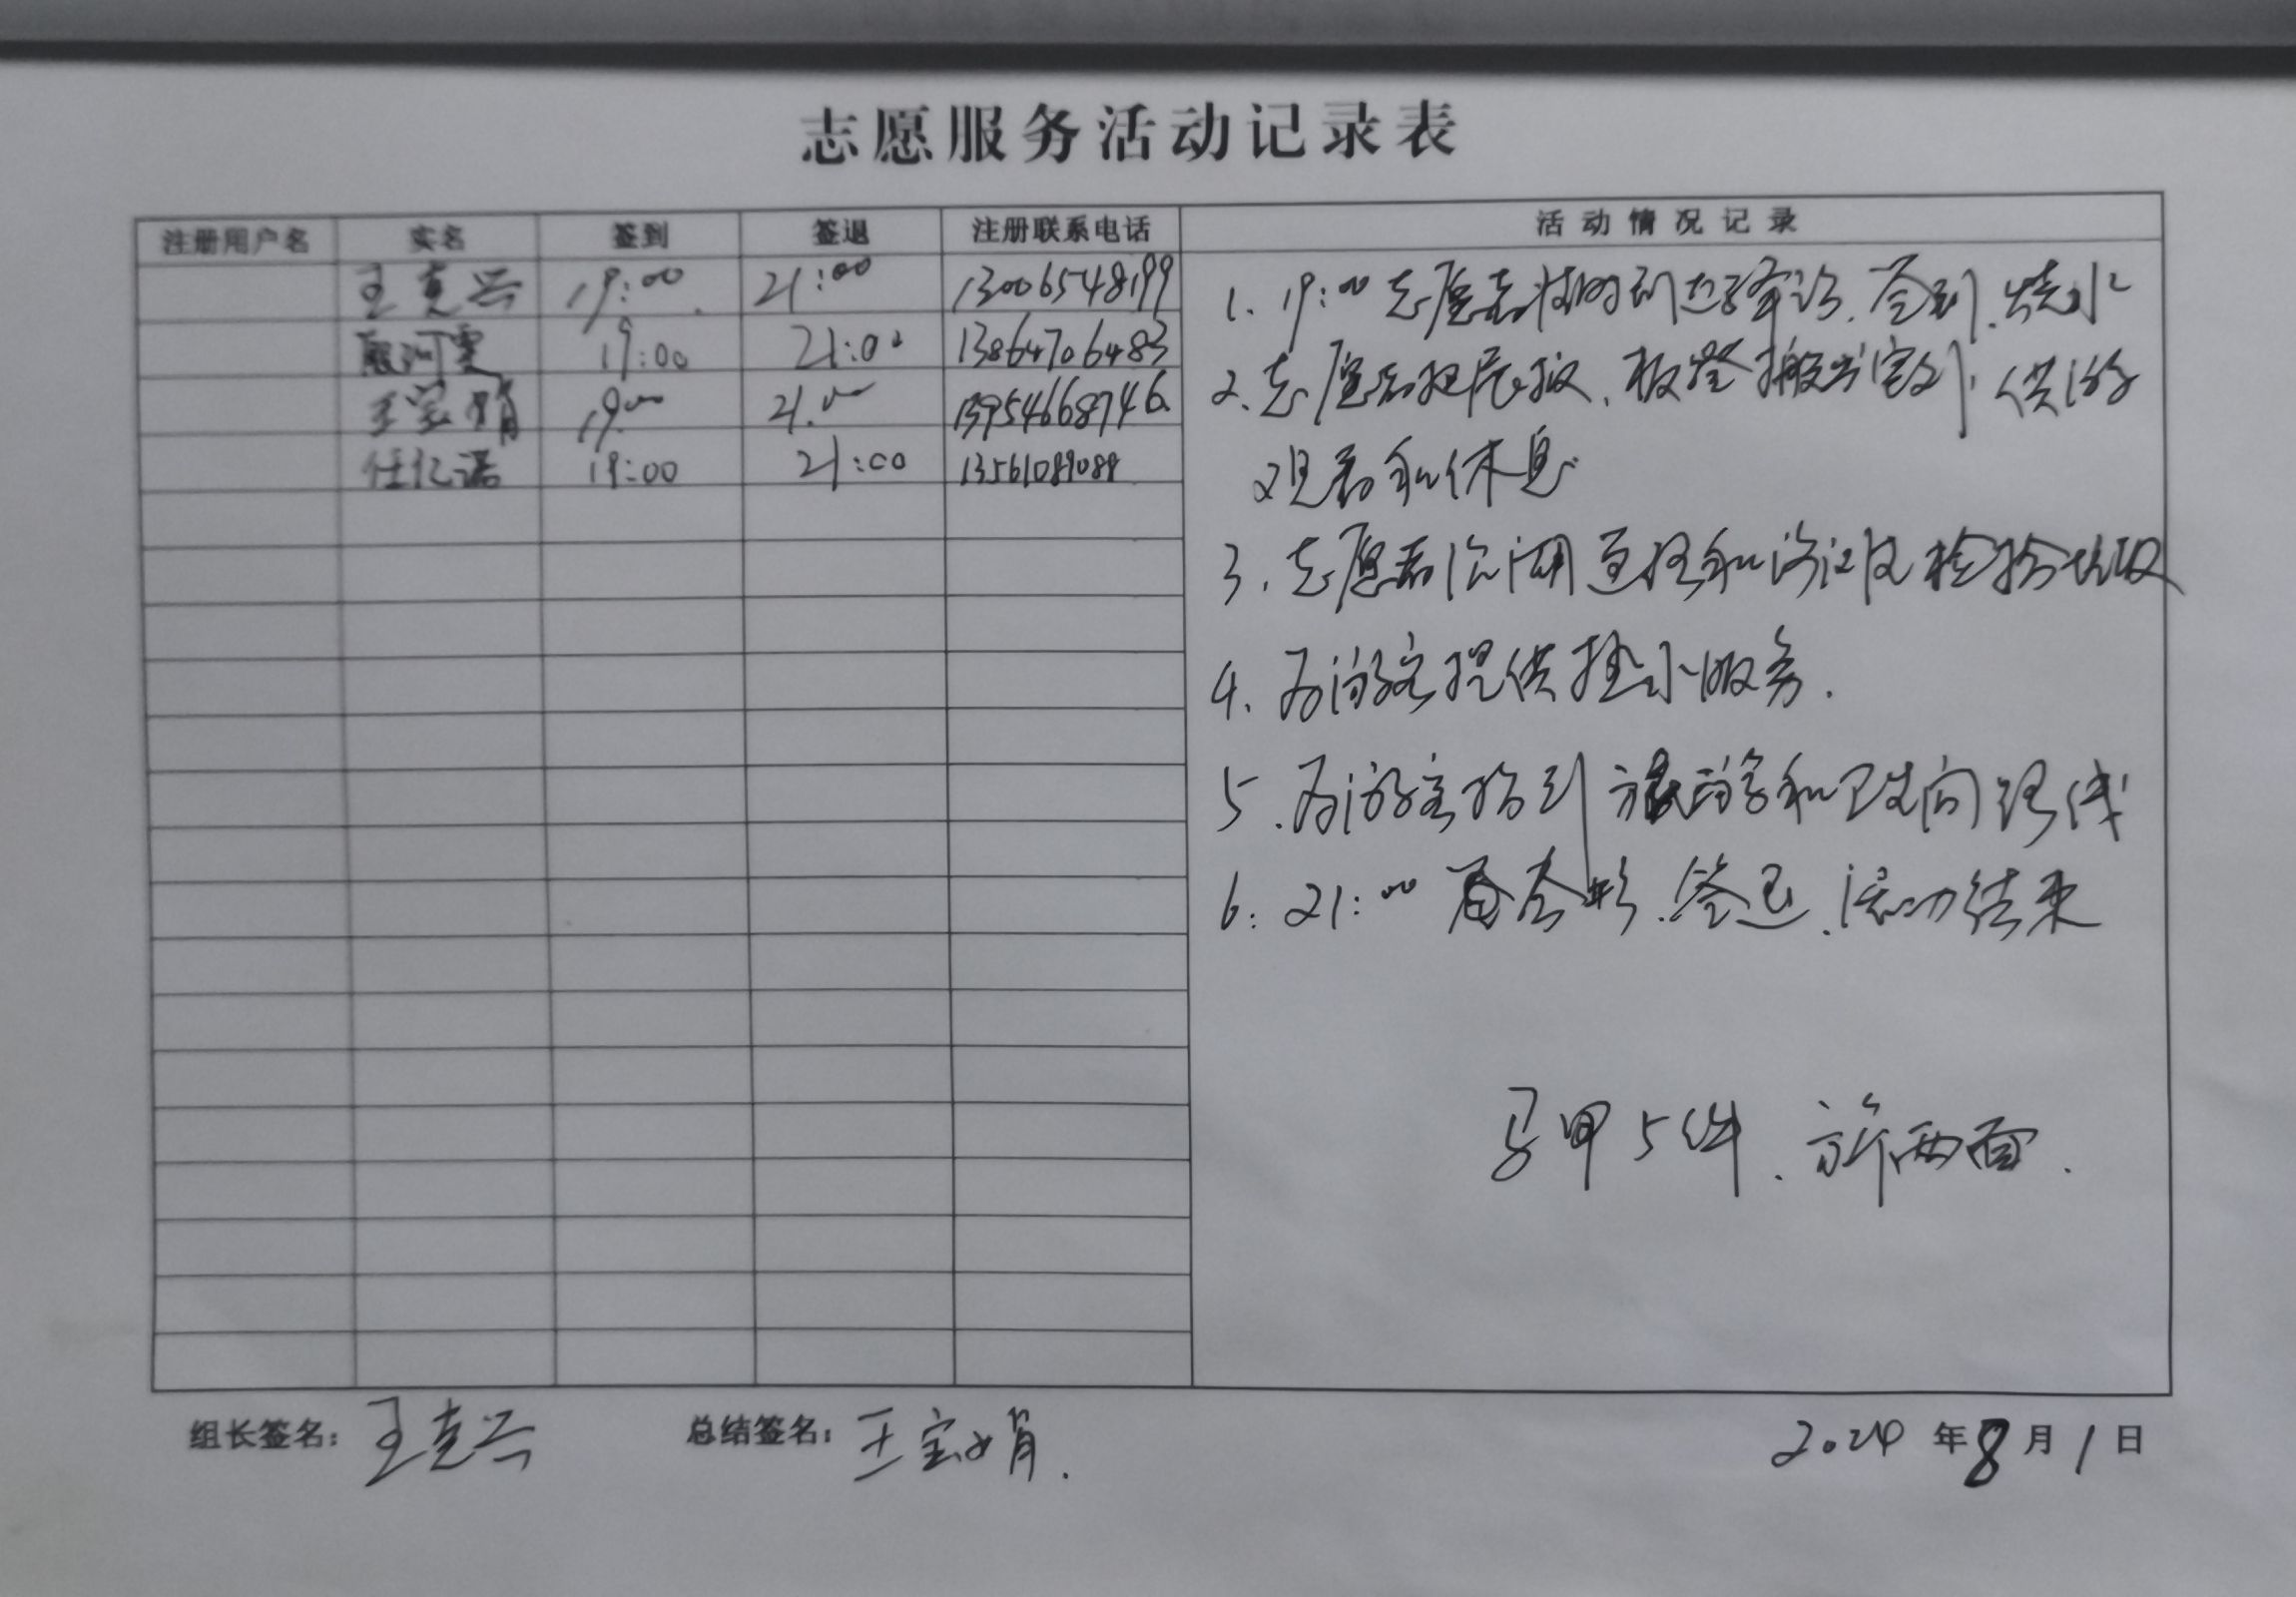 志愿服务活动记录表
注册用户名 实名 签到 签退 注册联系电话 活动情况记录
王克兴 19:00 21:00 13006548199
殷河雯 19:00 21:00 13864706483
王宝娟 19:00 21:00 13954668746
任忆诺 19:00 21:00 13561089089
1. 19:00 志愿者准时到达驿站、签到、烧水
2. 志愿者把展板、板凳搬出室外, 供游
观看和休息
3. 志愿者沿湖 捡拾垃圾
4. 为游客提供 服务.
5. 为游客指引 和卫生间路线
6: 21:00 合影、签退、活动结束
马甲5件、旗两面.
组长签名: 王克兴 总结签名: 王宝娟.
2024 年 8 月 1 日